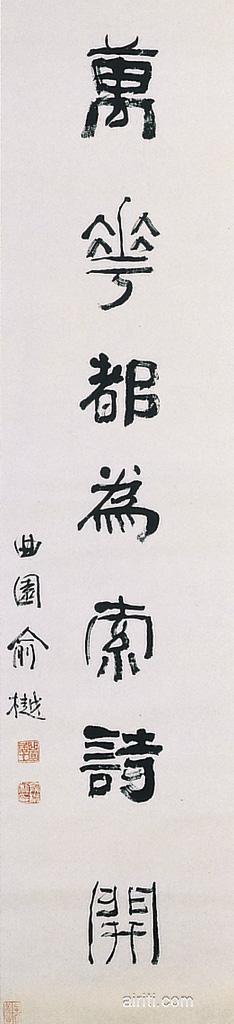 萬花都為索詩開
曲園俞樾
airiti.com